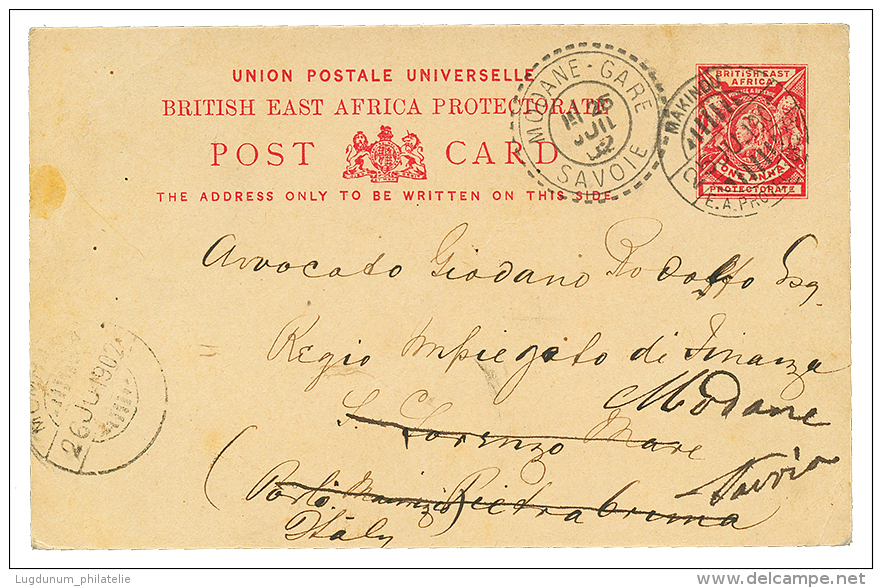 UNION POSTALE UNIVERSELLE
BRITISH EAST AFRICA PROTECTORATE
POST CARD
THE ADDRESS ONLY TO BE WRITTEN ON THIS SIDE.
MODANE-GARE
26
JUIL
SAVOIE
MAKINDU
E.A.PRO
BRITISH EAST
AFRICA
ONE ANNA
PROTECTORATE
Avvocato Giodano Rodolfo Esq.
Regio Impiegato di Finanza
S. Lorenzo Mare
Modane
Savoia
(Porto Maurizio) Pietrabruna
Italy
26 JU 1902
Lugdunum_philatelie
delcampe.net